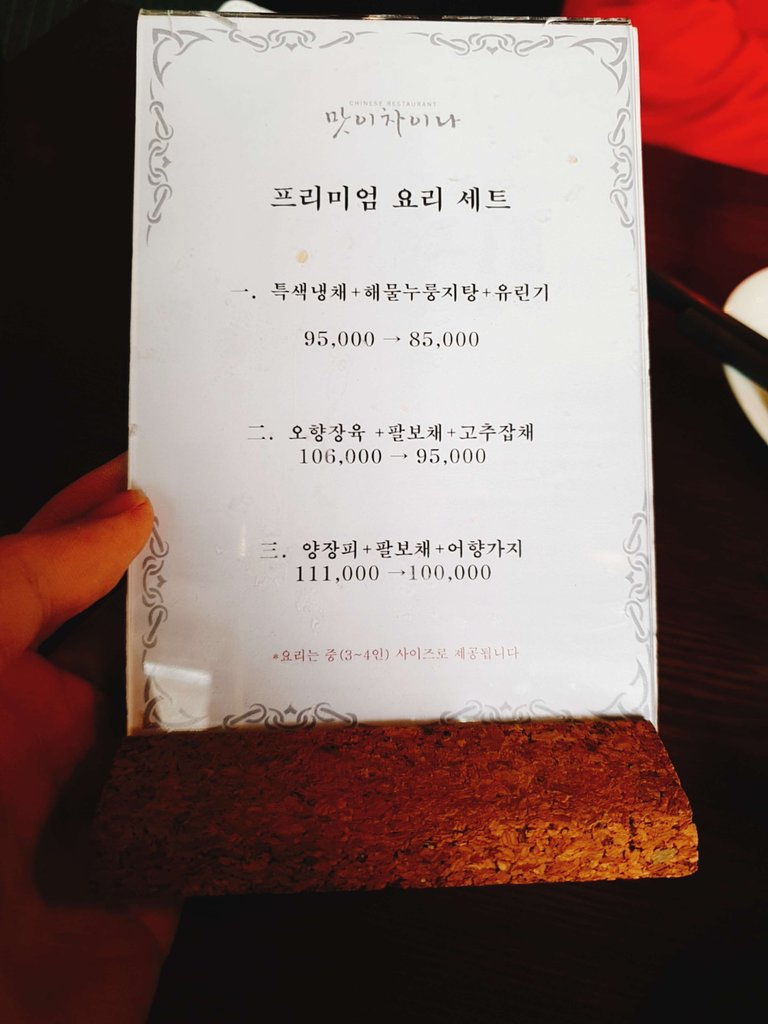 CHINESE RESTAURANT
맛이차이나
프리미엄 요리 세트
一. 특색냉채+해물누룽지탕+유린기
95,000 → 85,000
二. 오향장육 +팔보채+고추잡채
106,000 → 95,000
三. 양장피+팔보채+어향가지
111,000 →100,000
*요리는 중(3~4인) 사이즈로 제공됩니다